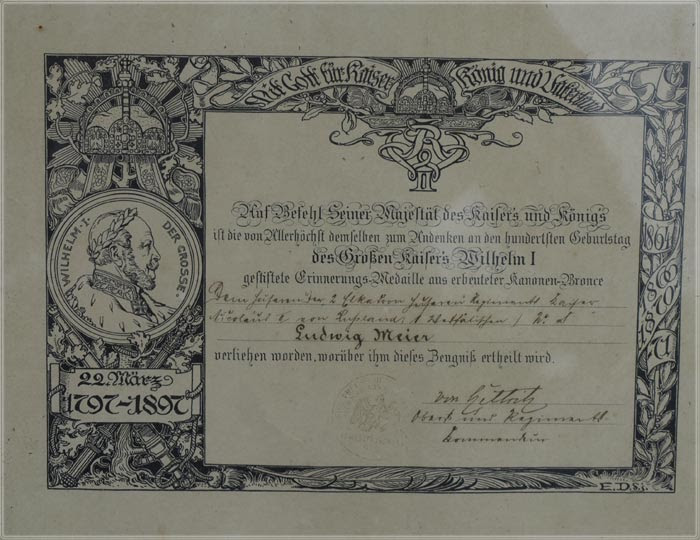 Mit Gott für Kaiser König und Vaterland
W II R
WILHELM·I· DER GROSSE·
1864
1866
1870
71
Auf Befehl Seiner Majestät des Kaisers und Königs
ist die von Allerhöchst demselben zum Andenken an den hundertsten Geburtstag
des Großen Kaisers Wilhelm I
gestiftete Erinnerungs-Medaille aus erbeuteter Kanonen-Bronce
Dem Husaren der 2 Eskadron Husaren Regiments Kaiser
Nicolaus II von Russland / 1 Westfälischen / No 8
Ludwig Meier
verliehen worden, worüber ihm dieses Zeugniß ertheilt wird.
von
Oberst und Regiments
Kommandeur
22. März
1797-1897
E.D.